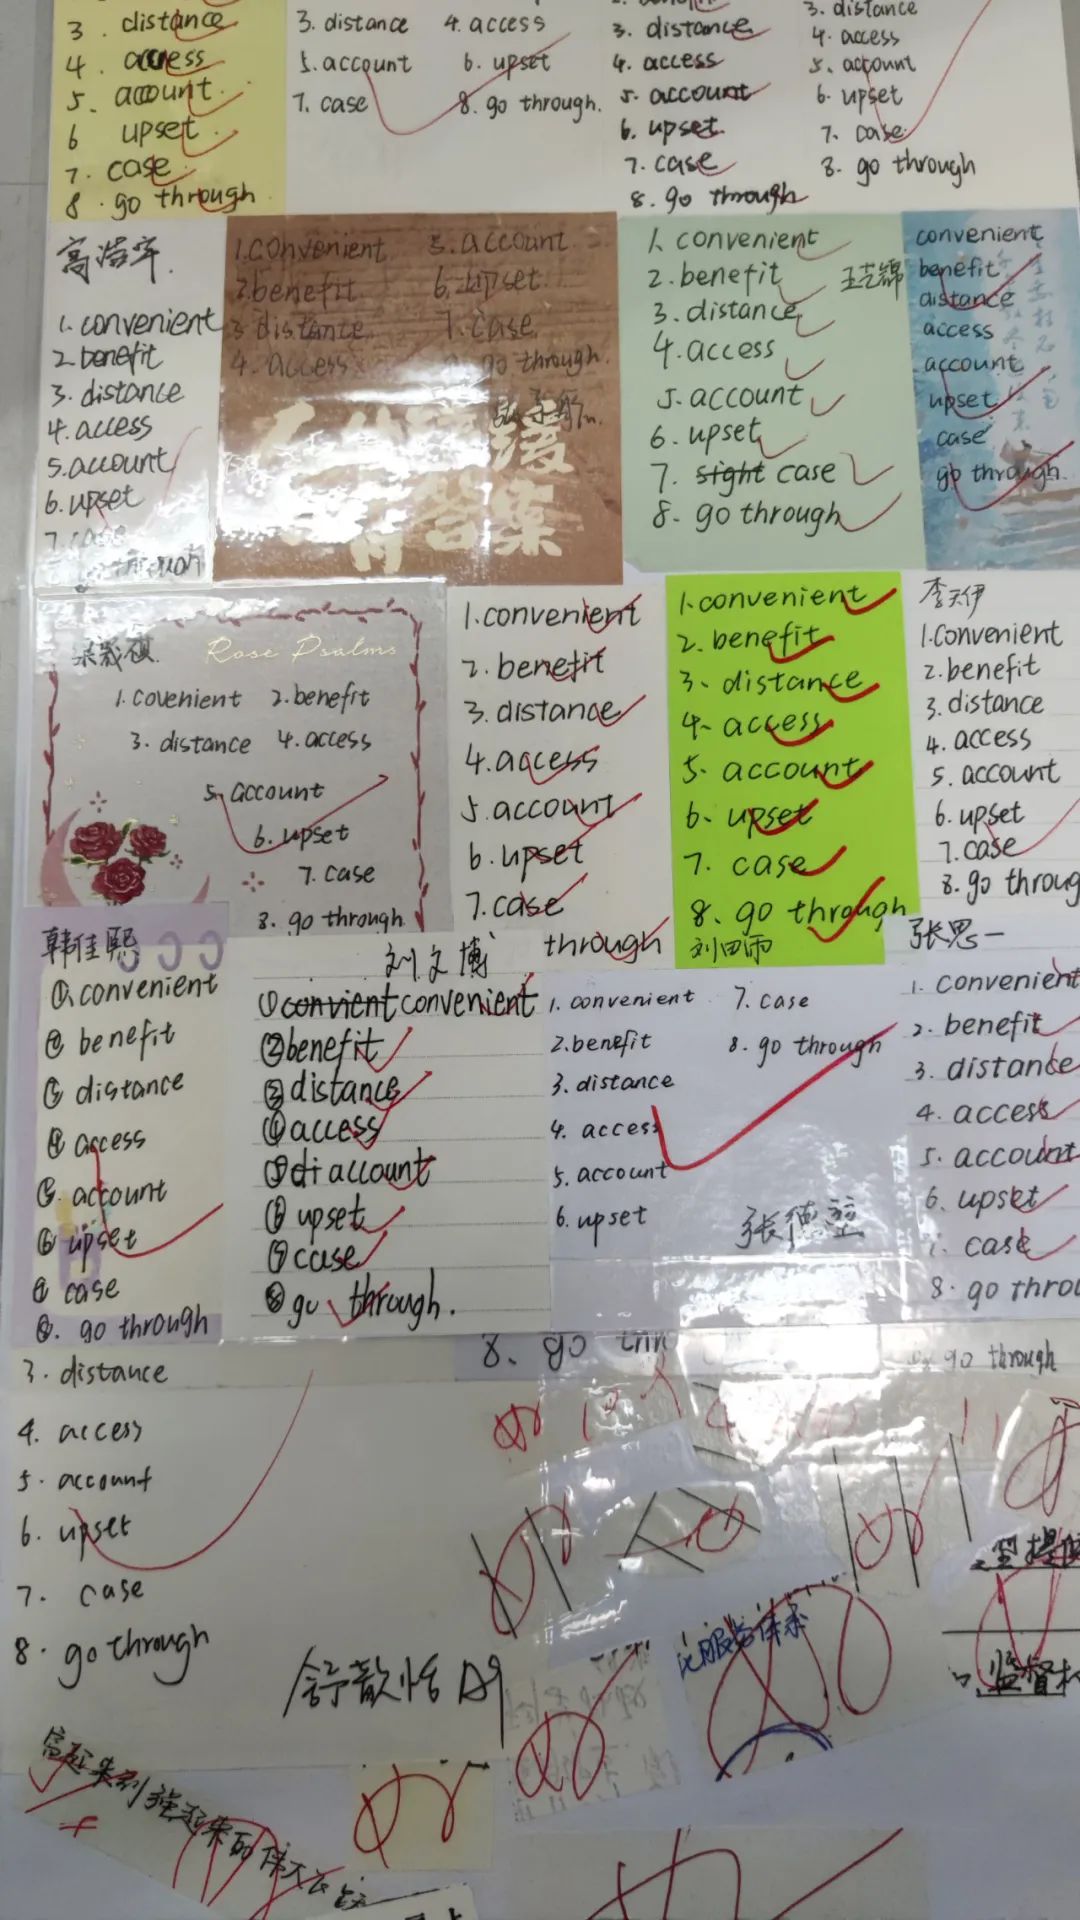 3. distance
4. access
5. account
6 upset
7. case
8. go through
3. distance 4. access
5. account 6. upset
7. case 8. go through.
3. distance
4. access
5. account
6. upset
7. case
8. go through
3. distance
4. access
5. account
6. upset
7. case
8. go through
1. convenient
2. benefit
3. distance
4. access
5. account
6. upset
7. case
1. convenient 5. account
2. benefit 6. upset
3. distance 7. case
4. access go through.
答案
1. convenient
2. benefit 王艺锦
3. distance
4. access
5. account
6. upset
7. sight case
8. go through
convenient
benefit
distance
access
account
upset
case
go through
Rose Psalms
1. covenient 2. benefit
3. distance 4. access
5. account
6. upset
7. case
8. go through
1. convenient
2. benefit
3. distance
4. access
5. account
6. upset
7. case
through
1. convenient
2. benefit
3. distance
4. access
5. account
6. upset
7. case
8. go through
刘田雨
李天伊
1. convenient
2. benefit
3. distance
4. access
5. account
6. upset
7. case
8. go throug
韩佳熙
① convenient
② benefit
③ distance
④ access
⑤ account
⑥ upset
⑦ case
⑧. go through
刘文博
① convient convenient
② benefit
③ distance
④ access
⑤ di account
⑥ upset
⑦ case
⑧ go through.
1. convenient 7. case
2. benefit 8. go through
3. distance
4. access
5. account
6. upset
张德立
张思一
1. convenient
2. benefit
3. distance
4. access
5. account
6. upset
7. case
8. go throu
8. go
go through
3. distance
4. access
5. account
6. upset
7. case
8. go through
舒歆恬
监督